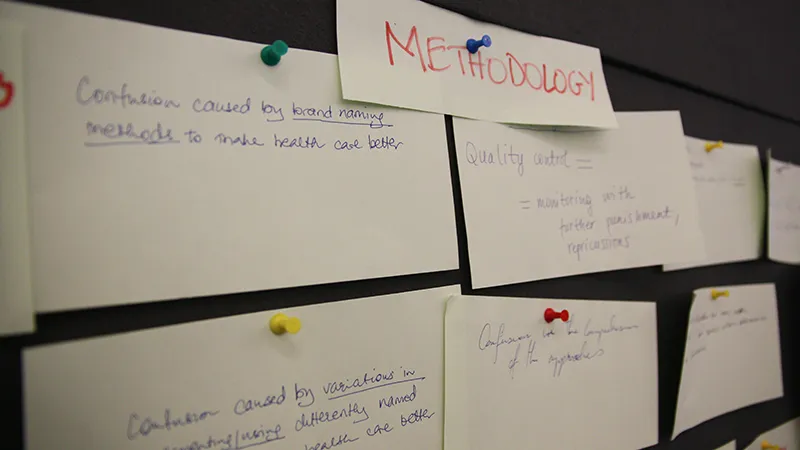 METHODOLOGY
Confusion caused by brand naming
methods to make health care better
Quality control =
= monitoring with
further punishment,
reprcussions
Confusion caused by variations in
menting/using differently named
health care better
Confusion in the comprehension
of the approaches